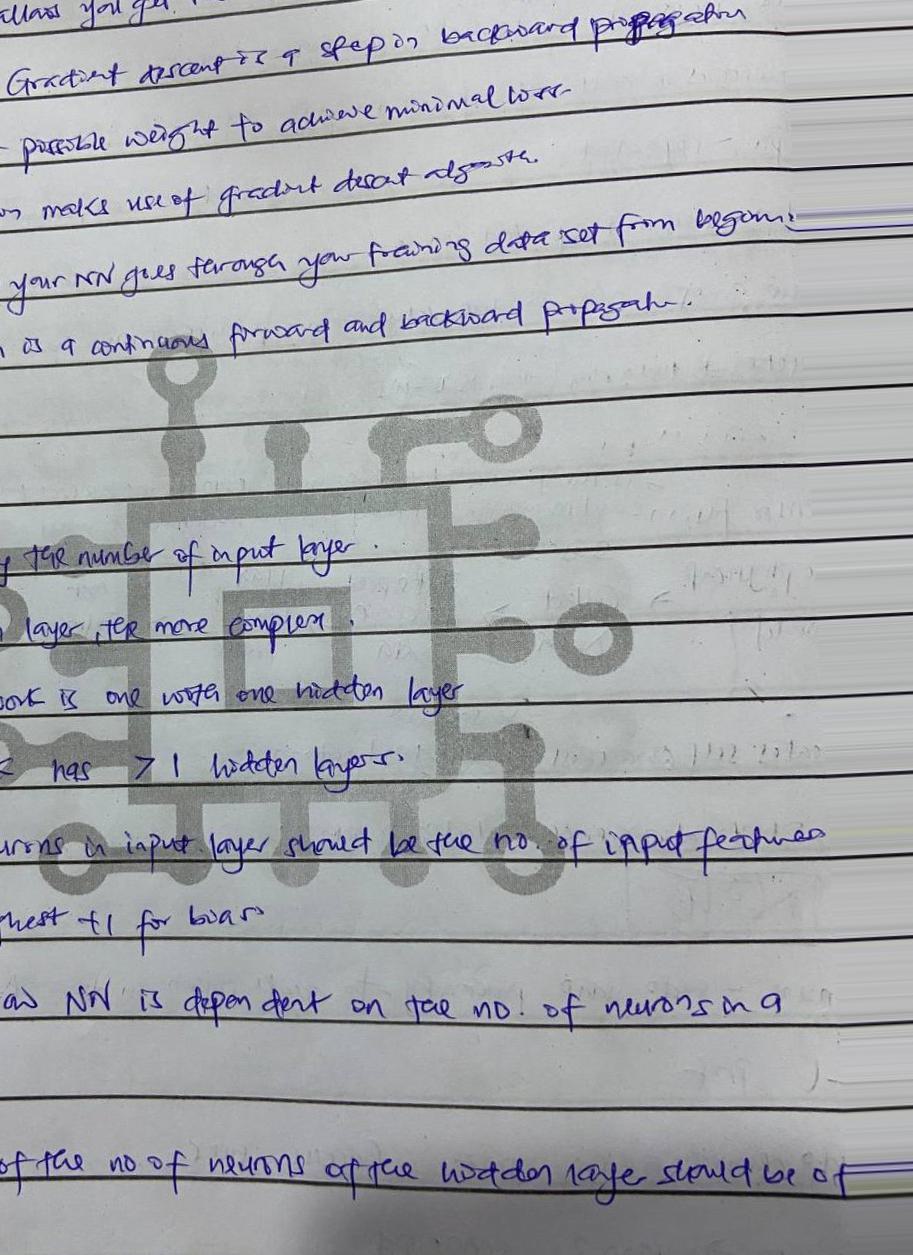 allows you get
Gradient descent is a step in backward propagation
possible weight to achieve minimal loss
makes use of gradient descent algorithm.
your NN goes through your training data set from
is a continuous forward and backward propagatn.
the number of input layer.
layer, the more complex.
is one with one hidden layer
has > 1 hidden layers.
in input layer should be the no. of input features
+1 for bias
NN is dependent on the no. of neurons in a
of the no of neurons of the hidden layer should be of